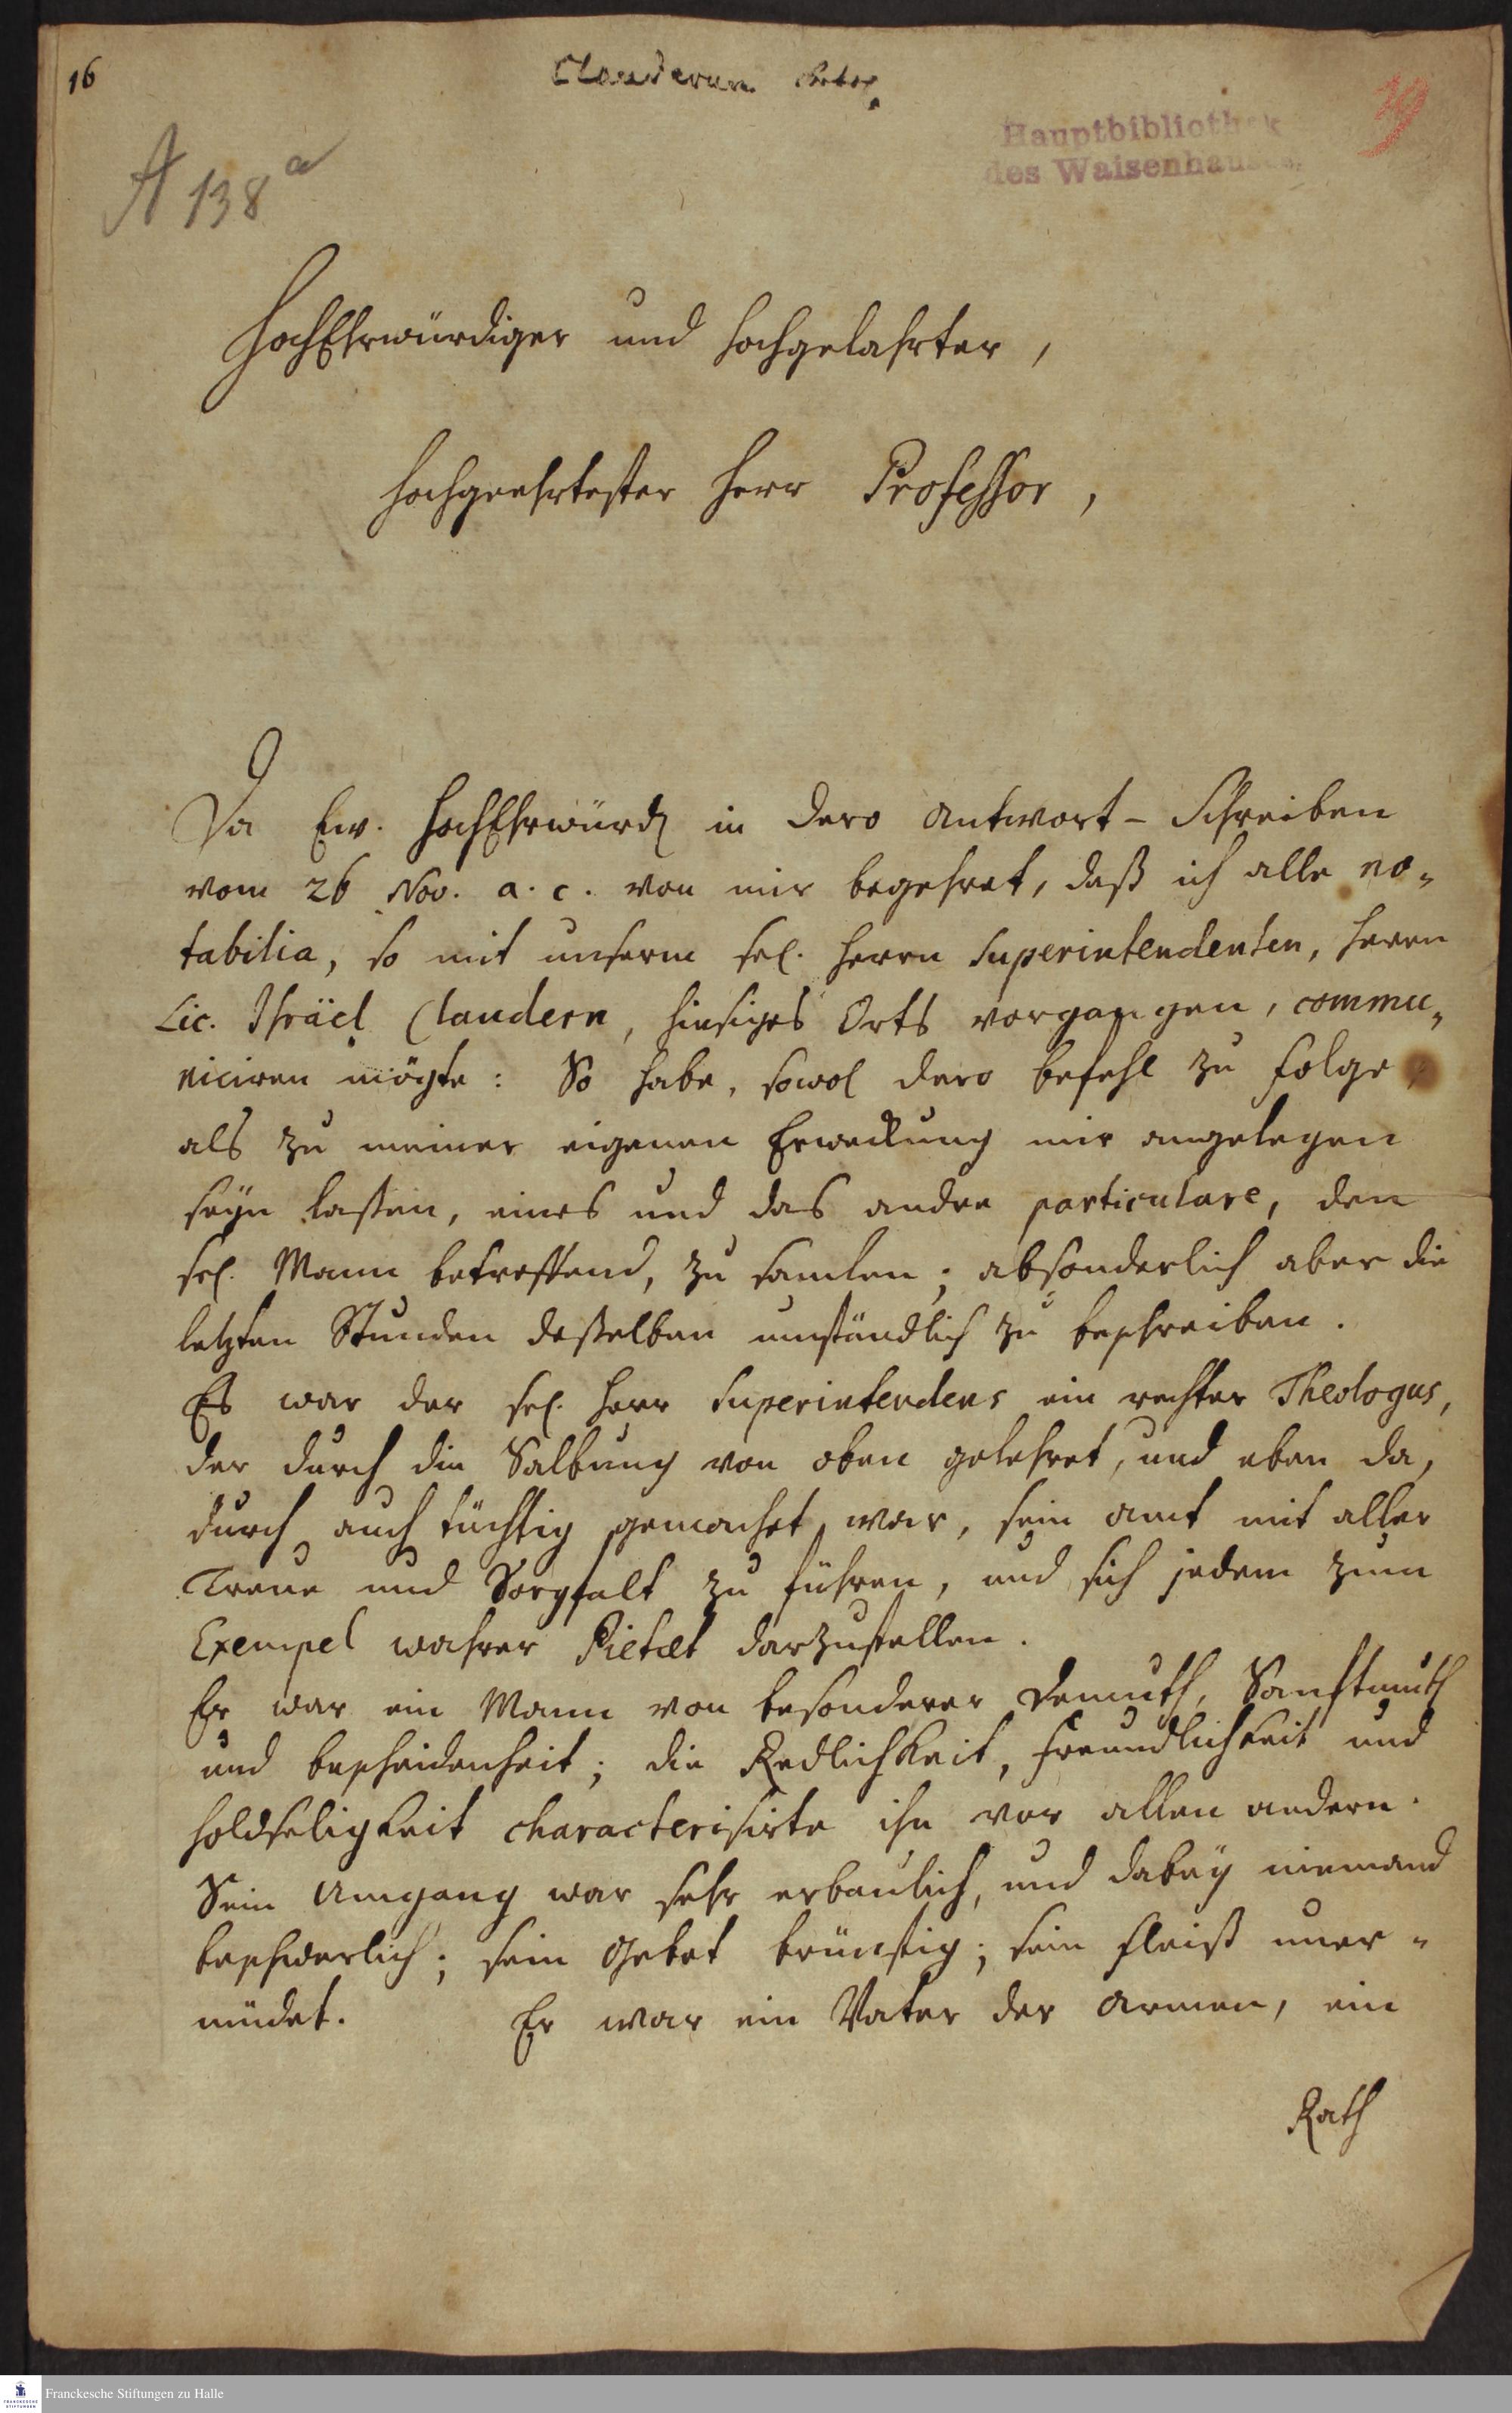 16
Clauderum betr.
19
Hauptbibliothek
des Waisenhauses
A 138 a
HochEhrwürdiger und Hochgelahrter,
Hochgeehrtester Herr Professor,
Da Ew. HochEhrwürd. in Dero Antwort-Schreiben
vom 26 Nov. a. c. von mir begehret, daß ich alle no-
tabilia, so mit unserm sel. Herrn Superintendenten, Herrn
Lic. Israël Claudern, hiesiges Orts vorgangen, commu-
niciren mögte: So habe, sowol Dero Befehl zu folge
als zu meiner eigenen Erweckung mir angelegen
seyn laßen, eines und das andre particulare, den
sel. Mann betreffend, zu samlen; absonderlich aber die
letzten Stunden deßelben umständlich zu beschreiben.
Es war der sel. Herr Superintendens ein rechter Theologus,
der durch die Salbung von oben gelehret, und eben da,
durch auch tüchtig gemachet war, sein Amt mit aller
Treue und Sorgfalt zu führen, und sich jedem zum
Exempel wahrer Pietæt darzustellen.
Er war ein Mann von besonderer Demuth, Sanftmuth
und Bescheidenheit; die Redlichkeit, Freundlichkeit und
Holdseligkeit characterisirte ihn vor allen andern.
Sein Umgang war sehr erbaulich, und dabey niemand
beschwerlich; sein Gebet brünstig; sein Fleiß uner-
müdet. Er war ein Vater der Armen, ein
Rath
FRANCKESCHE STIFTUNGEN
Franckesche Stiftungen zu Halle